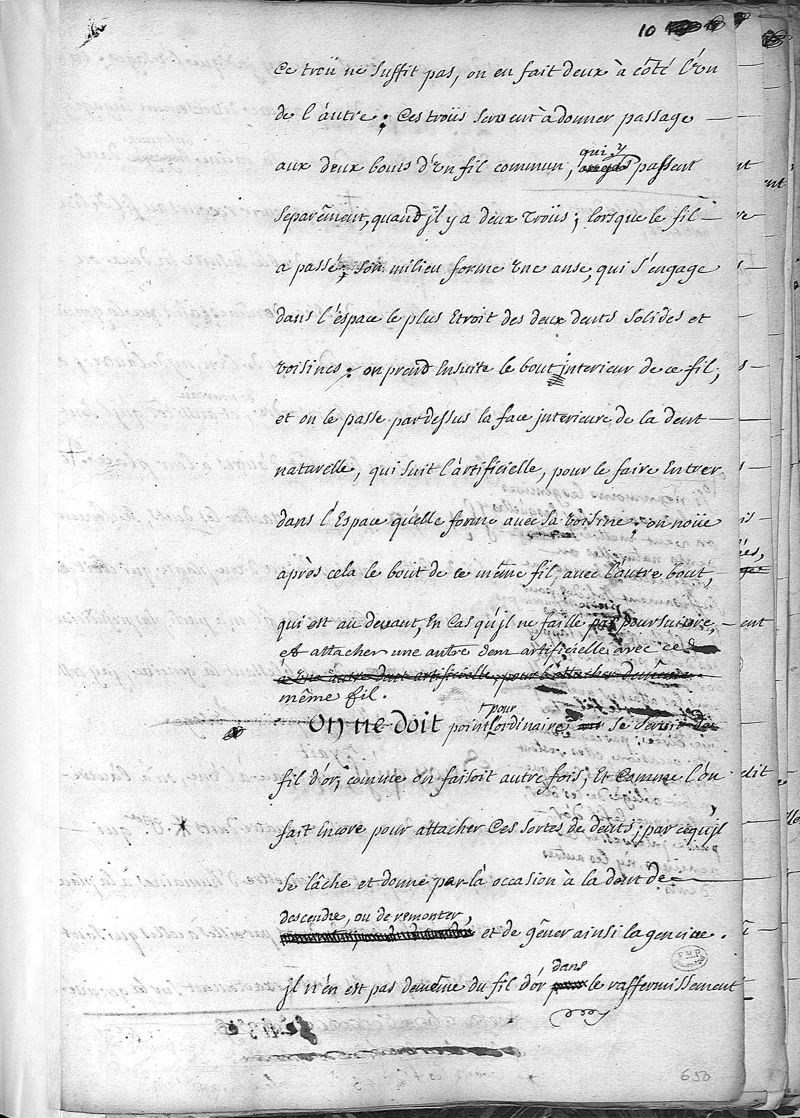 10
ce troü ne suffit pas, on en fait deux à côté l'ún
de l'aútre; Ces troüs servent à donner passage
aux deux bouts d'Un fil commun, qui y passent
separément, quand jl y a deux troüs; lorsque le fil
a passé, son milieu forme Une anse, qui s'engage
dans l'éspace le plus Etroit des deux dents solides et
voisines; on prend Ensuite le bout jnterieur de ce fil,
et on le passe par dessus la face jnterieure de la dent
naturelle, qui suit l'ártificielle, pour le faire Entrer
dans l'Espace qu'elle forme avec sa voisine; on noüe
après cela le bout de ce même fil, avec l'autre bout,
qui est au devant, En Cas qu'jl ne faille pas poursuivre,
et attacher une autre dent artificielle avec ce
à Une autre dent artificielle, pour l'attacher
même fil.
On ne doit point pour l'ordinaire se servir de
fil d'or, comme on faisoit autre fois, Et Comme l'ón
fait Encore pour attacher Ces sortes de dents; parcequ'jl
se lâche et donne par là occasion à la dent de
descendre, ou de remonter,
et de gêner ainsi la gencive.
jl n'én est pas de même du fil d'ór dans le raffermissement
650